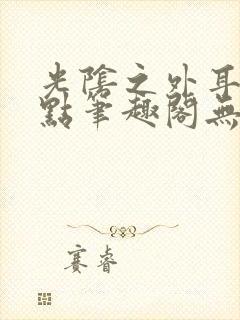 光陰之外耳
點筆趣閣無
賽睿